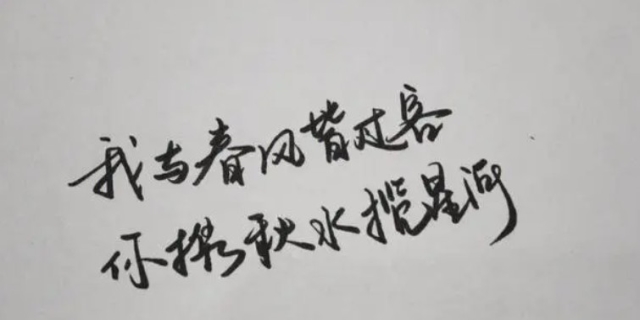 我与春风皆过客
你携秋水揽星河